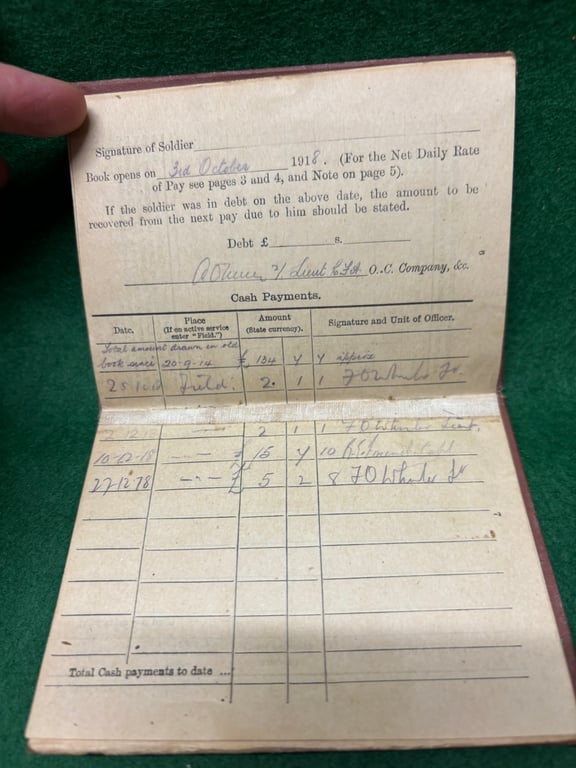 Signature of Soldier
Book opens on 3rd October 1918. (For the Net Daily Rate
of Pay see pages 3 and 4, and Note on page 5).
If the soldier was in debt on the above date, the amount to be
recovered from the next pay due to him should be stated.
Debt £ s.
2/ Lieut O.C. Company, &c.
Cash Payments.
Date. Place (If on active service enter "Field.") Amount (State currency). Signature and Unit of Officer.
Total amount drawn in old
book since 20-9-14 £ 134 approx
Field. 2. 1 1
2 1 1
10-12-18 £ 15 10
27-12-18 £ 5 2 8
Total Cash payments to date ...